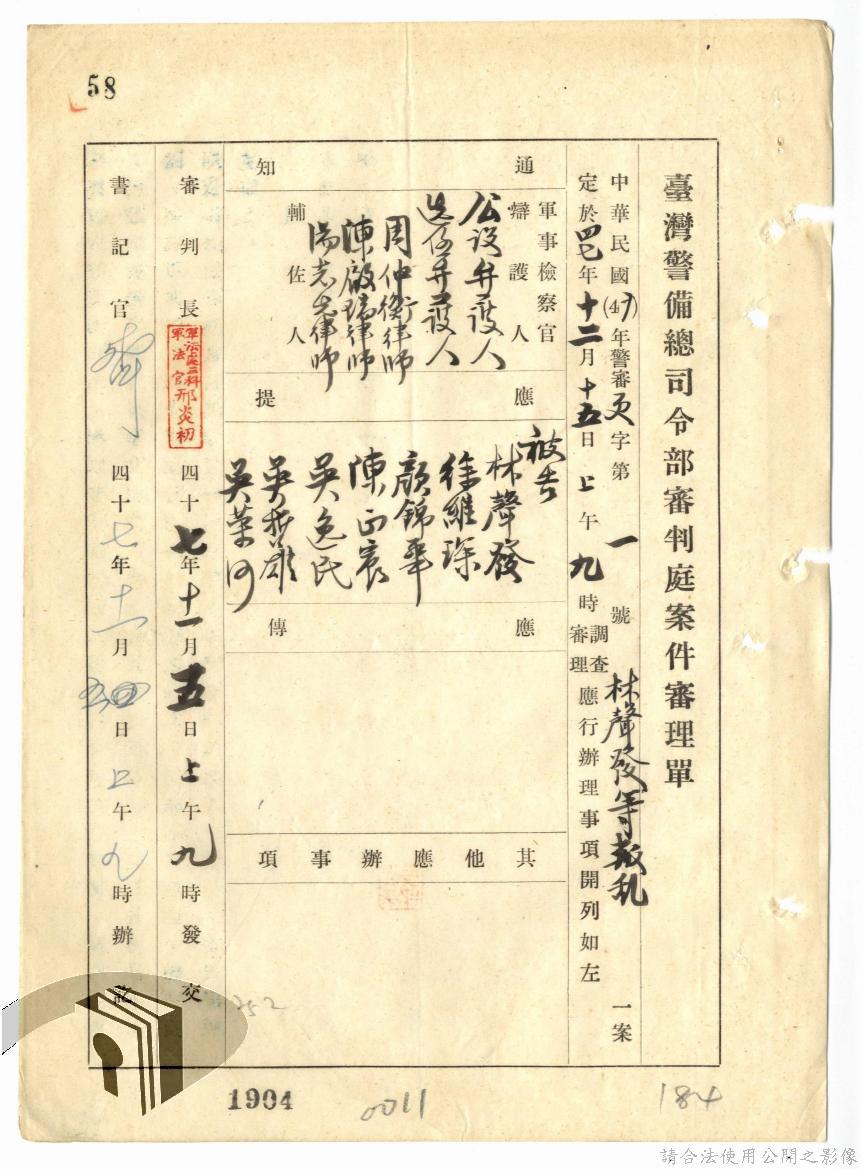 58
臺灣警備總司令部審判庭案件審理單
中華民國(47)年警審更字第一號林聲發等叛乱一案
定於四七年十二月十五日上午九時調查審理應行辦理事項開列如左
通知
軍事檢察官
辯護人
公設弁護人
選任弁護人
周仲衡律師
陳啟瑞律師
湯志先律師
輔佐人
應提
被告
林聲發
徐維琛
顏錦華
陳正宸
吳逸民
吳哲雄
吳葉河
應傳
其他應辦事項
審判長
軍法處三科
軍法官邢炎初
四十七年十一月五日上午九時發交
書記官
四十七年十一月五日上午九時辦訖
252
1904
0011
184
請合法使用公開之影像